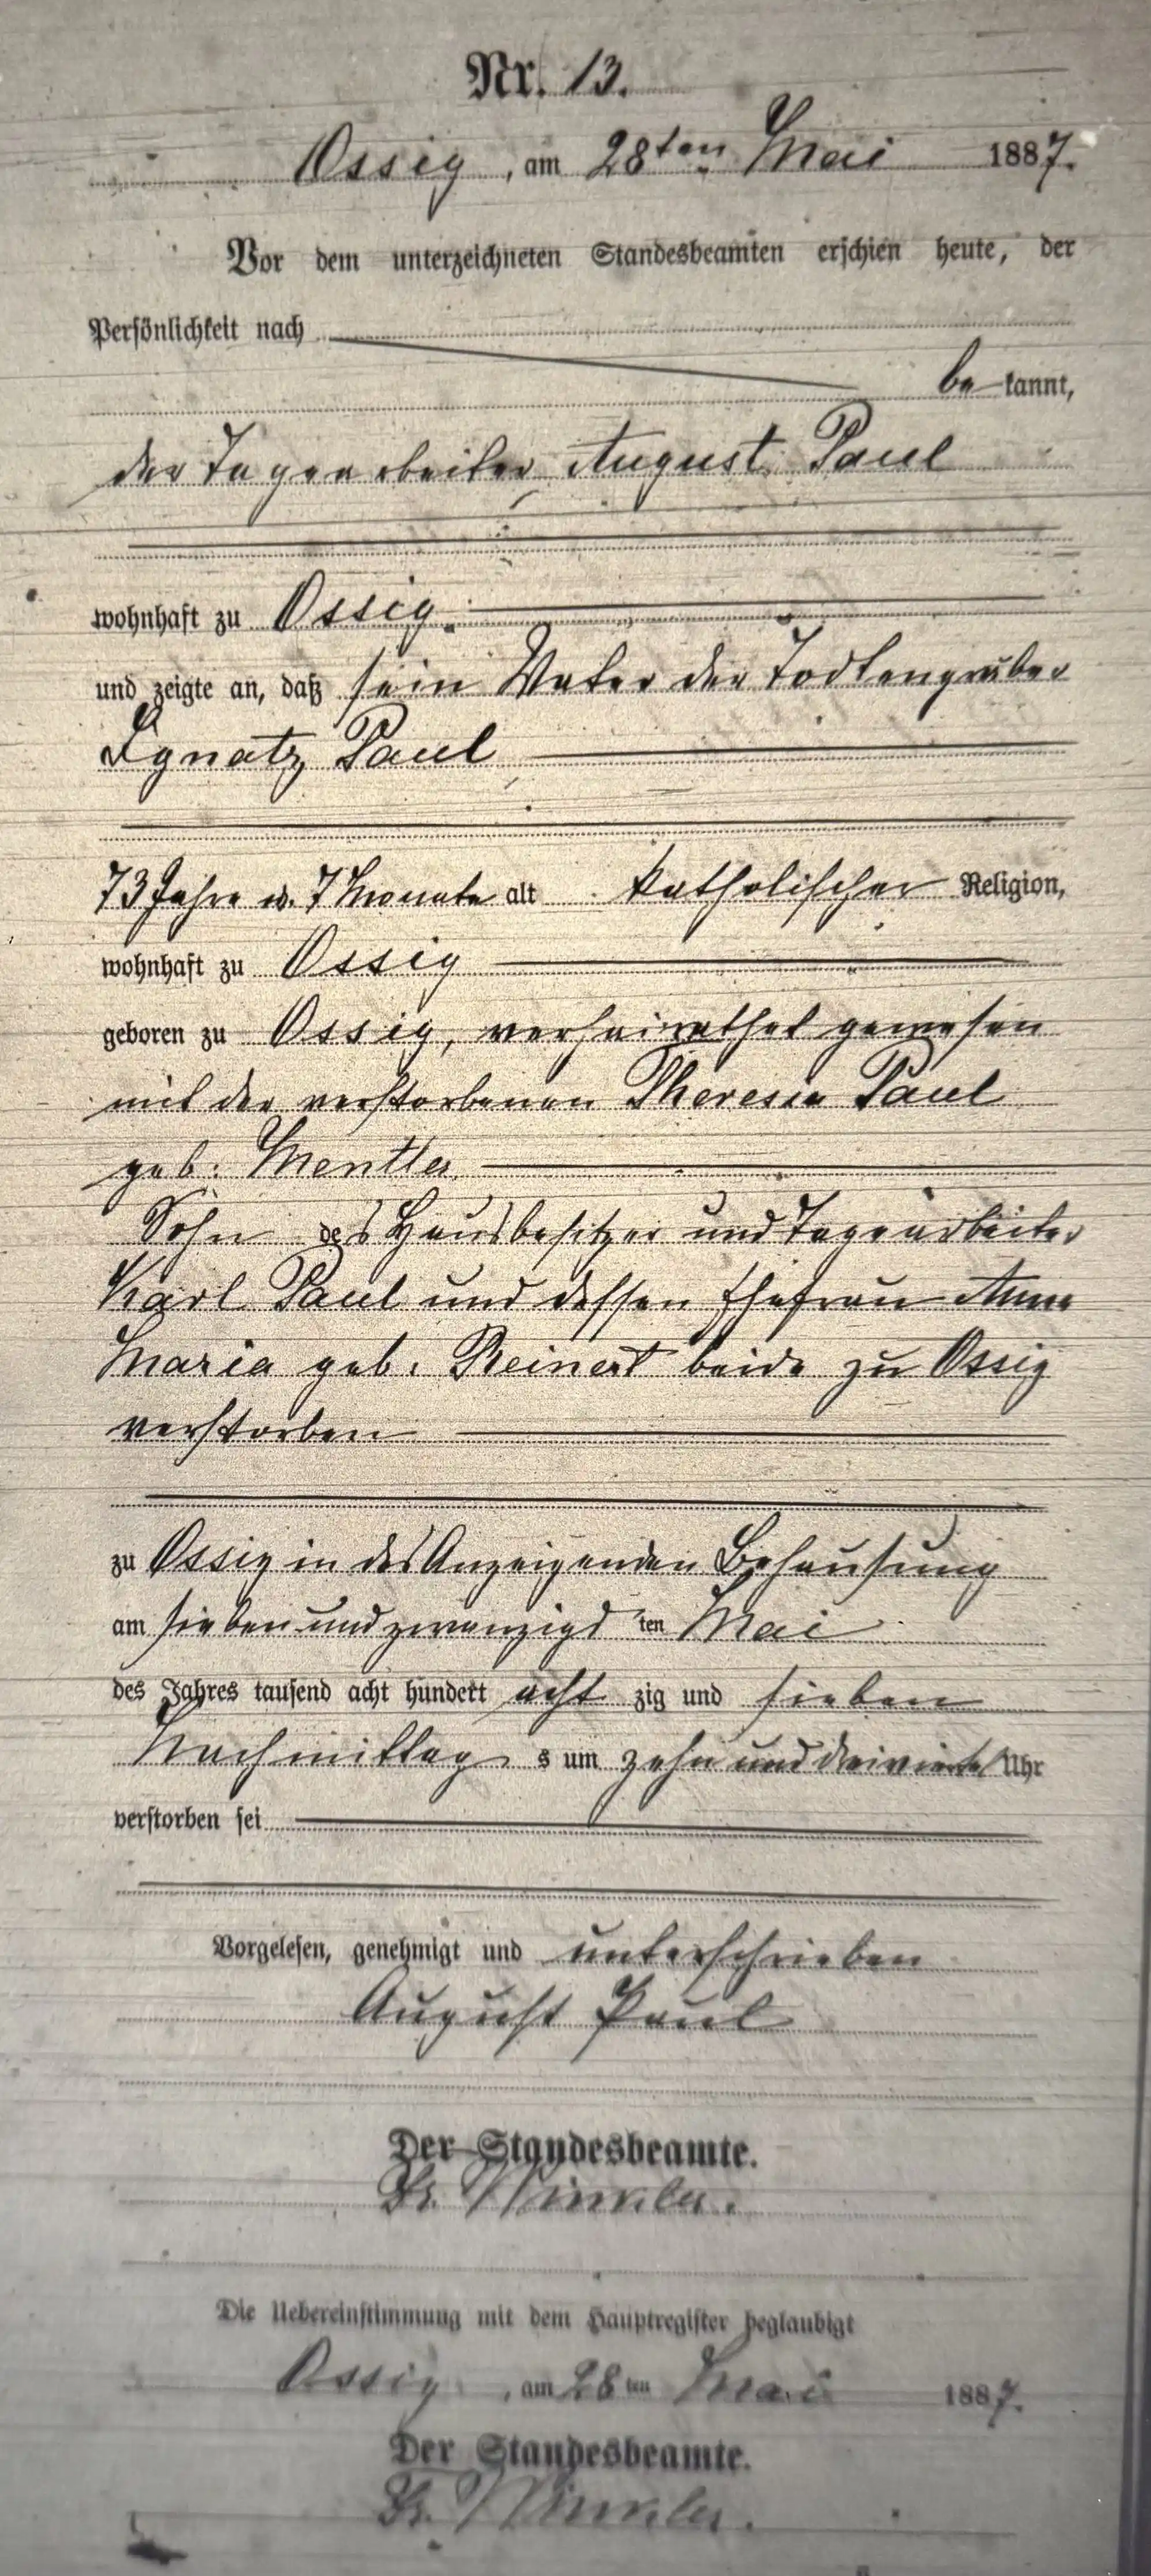 Nr. 13.
Ossig, am 28ten Mai 1887.
Vor dem unterzeichneten Standesbeamten erschien heute, der
Persönlichkeit nach
be kannt,
der Tagearbeiter August Paul
wohnhaft zu Ossig.
und zeigte an, daß sein Vater der Todtengräber
Ignatz Paul
73 Jahre u. 7 Monate alt katholischer Religion,
wohnhaft zu Ossig
geboren zu Ossig, verheirathet gewesen
mit der verstorbenen Theresia Paul
geb. Mentler
Sohn des Hausbesitzer und Tagearbeiter
Karl Paul und dessen Ehefrau Anna
Maria geb. Reinert beide zu Ossig
verstorben
zu Ossig in des Anzeigenden Behausung
am sieben und zwanzigs ten Mai
des Jahres tausend acht hundert acht zig und sieben
Nachmittag s um zehn und dreiviertel Uhr
verstorben sei
Vorgelesen, genehmigt und unterschrieben
August Paul
Der Standesbeamte.
Fr. Winkler.
Die Uebereinstimmung mit dem Hauptregister beglaubigt
Ossig, am 28ten Mai 1887.
Der Standesbeamte.
Fr. Winkler.